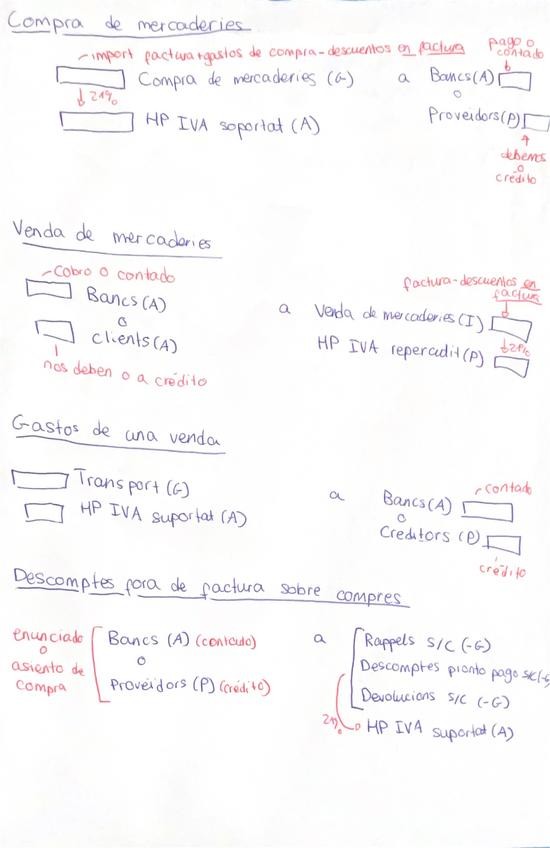 Compra de mercaderies
import factura+gastos de compra-descuentos en factura
pago o contado
Compra de mercaderies (G) a Bancs(A)
21%
o
HP IVA soportat (A) Proveïdors(P)
debemos
o
crédito
Venda de mercaderies
cobro o contado
factura-descuentos en factura
Bancs(A) a Venda de mercaderies(I)
o
21%
clients(A) HP IVA repercudit(P)
nos deben o a crédito
Gastos de una venda
Transport (G) a Bancs(A) contado
HP IVA suportat (A) o
Creditors (P)
crédito
Descomptes fora de factura sobre compres
enunciado o asiento de compra
Bancs (A) (contado) a Rappels s/c (-G)
o Descomptes pronto pago s/c(-G)
Proveïdors (P) (crédito) Devolucions s/c (-G)
21% HP IVA suportat (A)